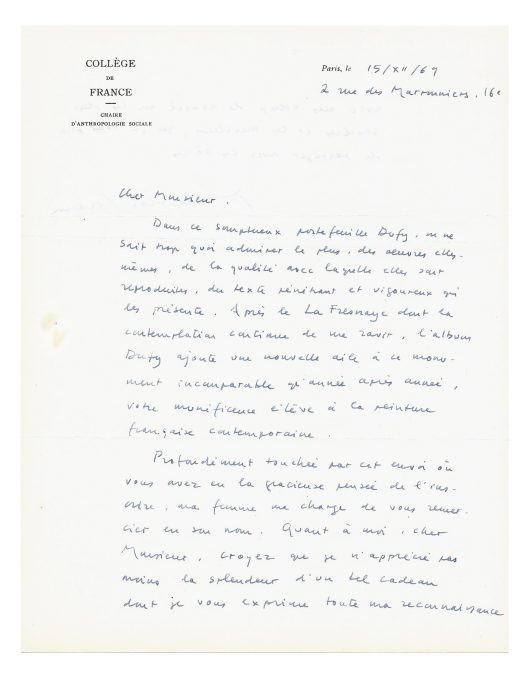 COLLÈGE
DE
FRANCE
CHAIRE
D'ANTHROPOLOGIE SOCIALE
Paris, le 15/XII/69
2 rue des Marronniers, 16e
Cher Monsieur,
Dans ce somptueux portefeuille Dufy, on ne
sait trop quoi admirer le plus, des œuvres elles-
mêmes, de la qualité avec laquelle elles sont
reproduites, du texte pénétrant et vigoureux qui
les présente. Après le La Fresnaye dont la
contemplation continue de me ravir, l'album
Dufy ajoute une nouvelle aile à ce monu-
ment incomparable qu'année après année,
votre munificence élève à la peinture
française contemporaine.
Profondément touchée par cet envoi où
vous avez eu la gracieuse pensée de l'ins-
crire, ma femme me charge de vous remer-
cier en son nom. Quant à moi, cher
Monsieur, croyez que je n'apprécie pas
moins la splendeur d'un tel cadeau
dont je vous exprime toute ma reconnaissance